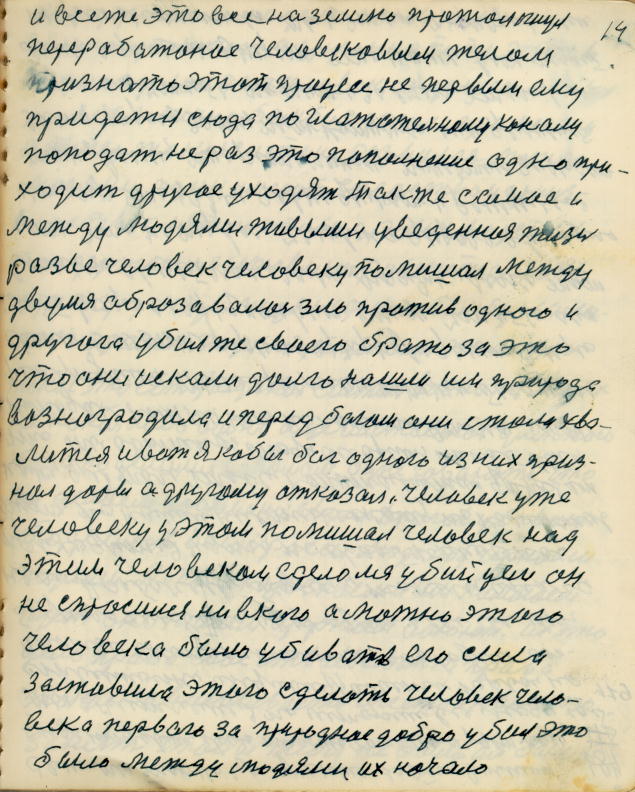 14
и всеже это все на землю протолкнул
перерабатоное человековым телом
признать этот процес не первым ему
придетця сюда поглотательному коналу
поподат нераз это пополнение одно при-
ходит другое уходят также самое и
между людями живыми уведенная жизн
разве человек человеку помишал между
двумя оброзавалос зло против одного и
другога убил же своего брата за это
что они искали долго нашли им природа
вазногродила и перед богом они стали хва-
литця и вот якобы бог одного из них приз-
нал дары а другому отказал. человек уже
человеку у этом помишал человек над
этим человеком сделался убийцем он
не спросился ни вкого а можно этого
человека было убивать его сила
заставила этого сделать человек чело-
века первого за природное добро убил это
было между людями их начало